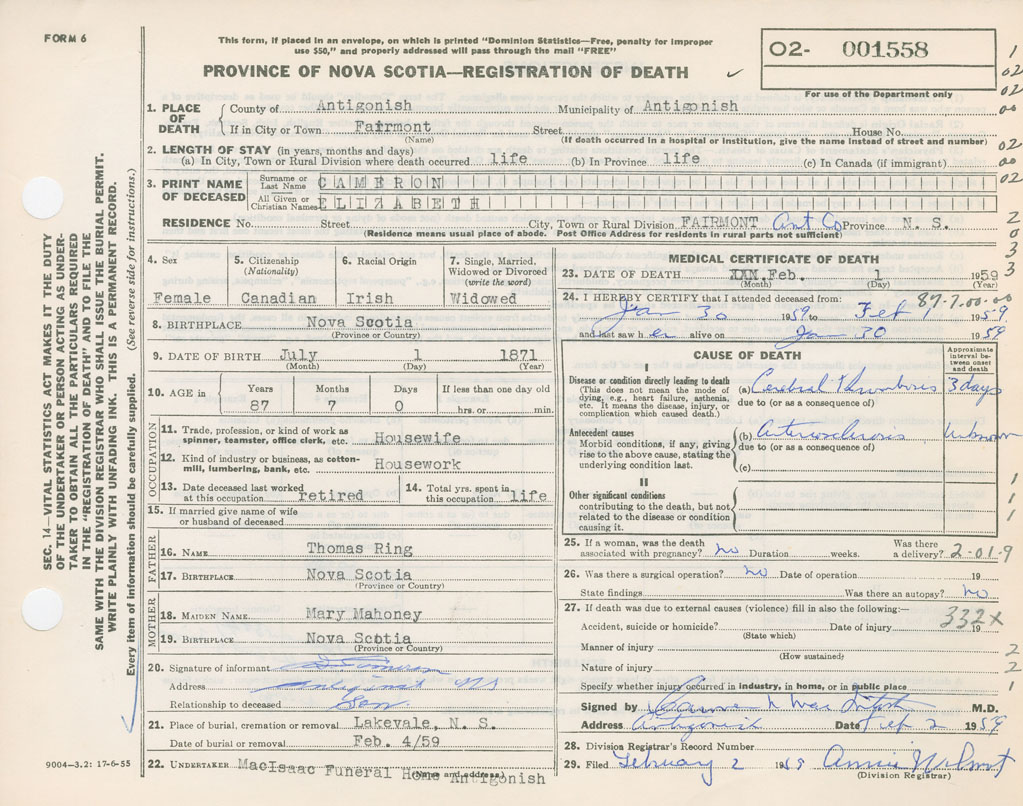 FORM 6
This form, if placed in an envelope, on which is printed "Dominion Statistics—Free, penalty for improper
use $50," and properly addressed will pass through the mail "FREE"
PROVINCE OF NOVA SCOTIA—REGISTRATION OF DEATH ✓
02- 001558
For use of the Department only
1. PLACE OF DEATH
County of Antigonish Municipality of Antigonish
If in City or Town Fairmont Street House No.
(Name) (If death occurred in a hospital or institution, give the name instead of street and number)
2. LENGTH OF STAY (in years, months and days)
(a) In City, Town or Rural Division where death occurred life (b) In Province life (c) In Canada (if immigrant)
3. PRINT NAME OF DECEASED
Surname or Last Name CAMERON
All Given or Christian Names ELIZABETH
RESIDENCE No. Street City, Town or Rural Division FAIRMONT Ant Co Province N. S.
(Residence means usual place of abode. Post Office Address for residents in rural parts not sufficient)
4. Sex
Female
5. Citizenship
(Nationality)
Canadian
6. Racial Origin
Irish
7. Single, Married,
Widowed or Divorced
(write the word)
Widowed
8. BIRTHPLACE Nova Scotia
(Province or Country)
9. DATE OF BIRTH July 1 1871
(Month) (Day) (Year)
10. AGE in
Years Months Days If less than one day old
87 7 0 hrs. or min.
OCCUPATION
11. Trade, profession, or kind of work as
spinner, teamster, office clerk, etc. Housewife
12. Kind of industry or business, as cotton-
mill, lumbering, bank, etc. Housework
13. Date deceased last worked
at this occupation retired
14. Total yrs. spent in
this occupation life
15. If married give name of wife
or husband of deceased
FATHER
16. NAME Thomas Ring
17. BIRTHPLACE Nova Scotia
(Province or Country)
MOTHER
18. MAIDEN NAME Mary Mahoney
19. BIRTHPLACE Nova Scotia
(Province or Country)
20. Signature of informant
Address Antigonish NS
Relationship to deceased Son.
21. Place of burial, cremation or removal Lakevale, N. S.
Date of burial or removal Feb. 4/59
22. UNDERTAKER MacIsaac Funeral Home Antigonish
(Name and address)
MEDICAL CERTIFICATE OF DEATH
23. DATE OF DEATH Feb. 1 1959
(Month) (Day) (Year)
87-7.00-00
24. I HEREBY CERTIFY that I attended deceased from:
Jan 30 1959 to Feb 1, 1959
and last saw her alive on Jan 30 1959
CAUSE OF DEATH
Approximate
interval be-
tween onset
and death
I
Disease or condition directly leading to death
(This does not mean the mode of
dying, e.g., heart failure, asthenia,
etc. It means the disease, injury, or
complication which caused death.)
(a) Cerebral Thrombosis 3 days
due to (or as a consequence of)
Antecedent causes
Morbid conditions, if any, giving
rise to the above cause, stating the
underlying condition last.
(b) Arteriosclerosis Unknown
due to (or as a consequence of)
(c)
II
Other significant conditions
contributing to the death, but not
related to the disease or condition
causing it.
25. If a woman, was the death
associated with pregnancy? No Duration weeks.
Was there
a delivery? 2-01.9
26. Was there a surgical operation? No Date of operation 19
State findings Was there an autopsy? No
27. If death was due to external causes (violence) fill in also the following:—
332X
Accident, suicide or homicide? Date of injury 19
(State which)
Manner of injury
(How sustained)
Nature of injury
Specify whether injury occurred in industry, in home, or in public place
Signed by M.D.
Address Antigonish Date Feb 2 1959
28. Division Registrar's Record Number
29. Filed February 2 1959 Annie
(Division Registrar)
1
02
02
00
02
00
02
2
0
3
3
1
1
1
2
2
1
SEC. 14—VITAL STATISTICS ACT MAKES IT THE DUTY
OF THE UNDERTAKER OR PERSON ACTING AS UNDER-
TAKER TO OBTAIN ALL THE PARTICULARS REQUIRED
IN THE "REGISTRATION OF DEATH" AND TO FILE THE
SAME WITH THE DIVISION REGISTRAR WHO SHALL ISSUE THE BURIAL PERMIT.
WRITE PLAINLY WITH UNFADING INK. THIS IS A PERMANENT RECORD.
Every item of information should be carefully supplied. (See reverse side for instructions.)
9004—3.2: 17-6-55